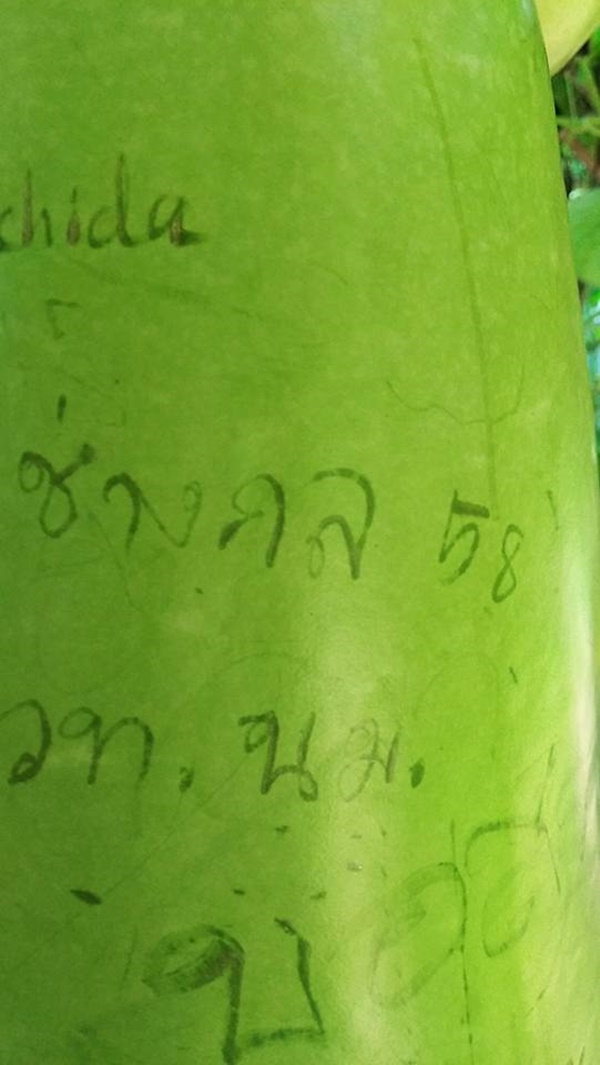 chida
ช่างกล 58
วท. นม.